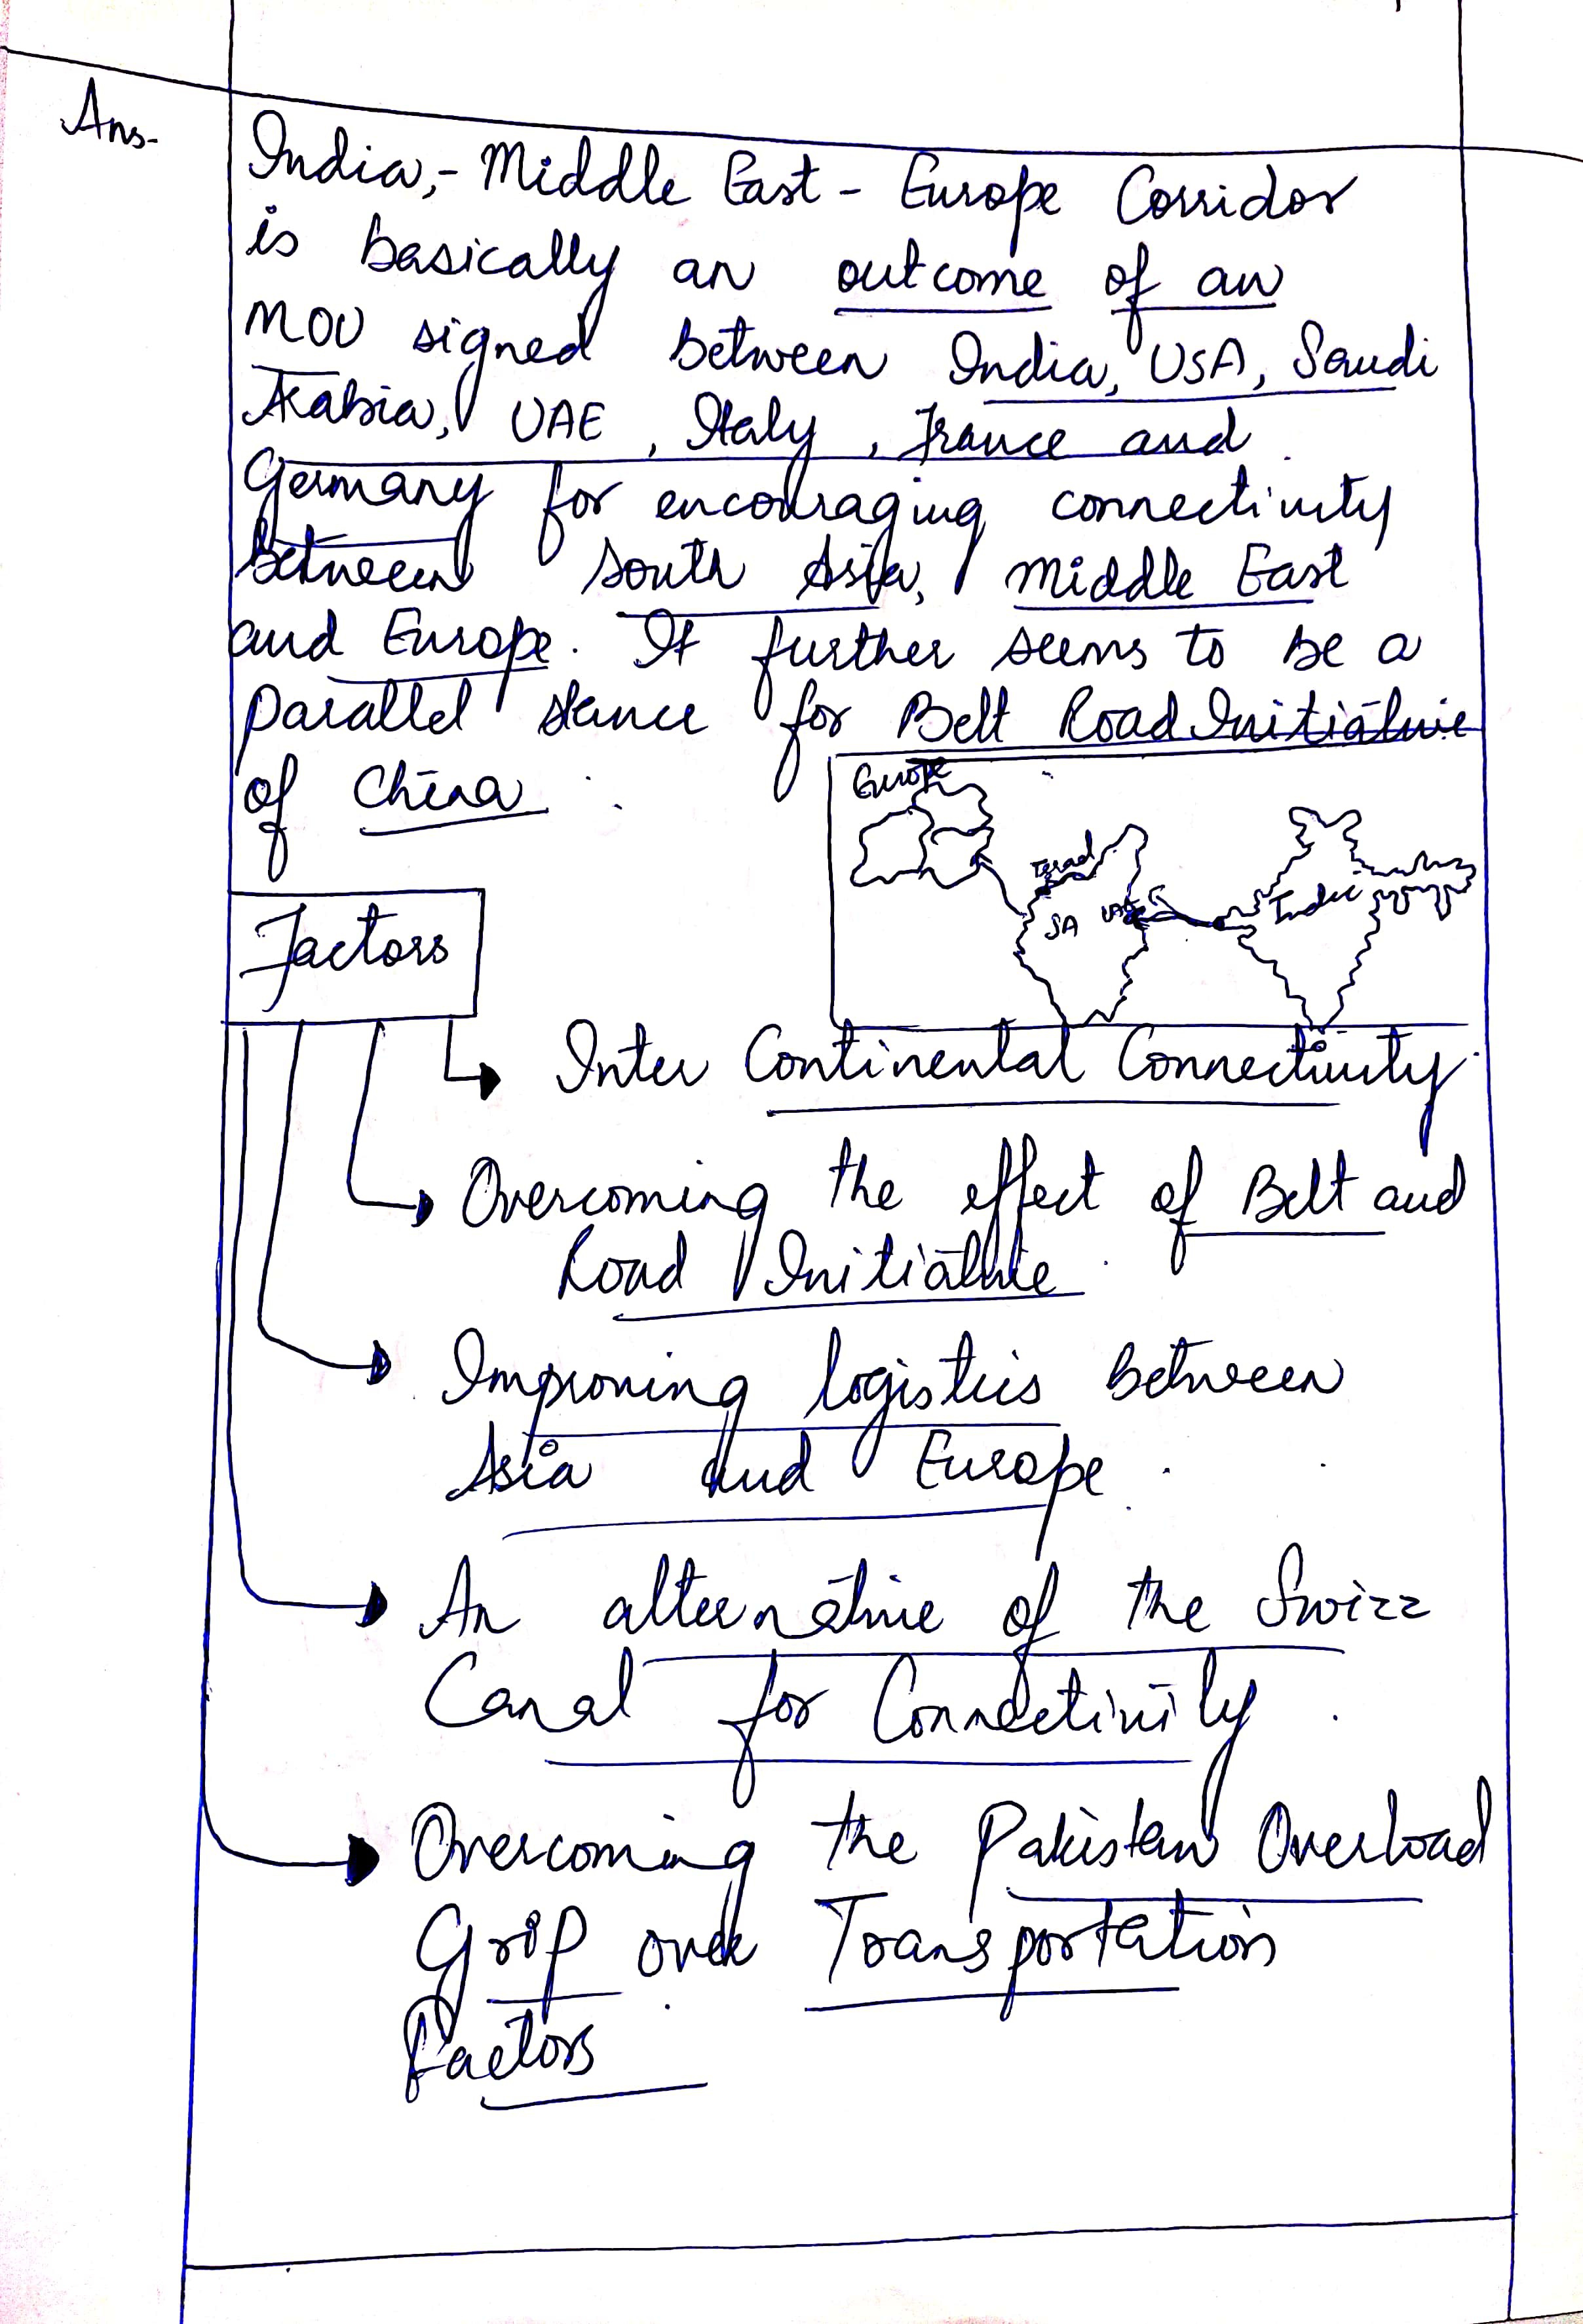 Ans-
India,- Middle East - Europe Corridor
is basically an outcome of an
MOU signed between India, USA, Saudi
Arabia, UAE, Italy, France and
Germany for encouraging connectivity
between South Asia, Middle East
and Europe. It further seems to be a
parallel stance for Belt Road Initiative
of China.
Europe
Israel
SA UAE
India
Factors
Inter Continental Connectivity.
Overcoming the effect of Belt and
Road Initiative.
Improving logistics between
Asia and Europe.
An alternative of the Swizz
Canal for Connectivity.
Overcoming the Pakistan Overload
Grip over Transportation
Factors